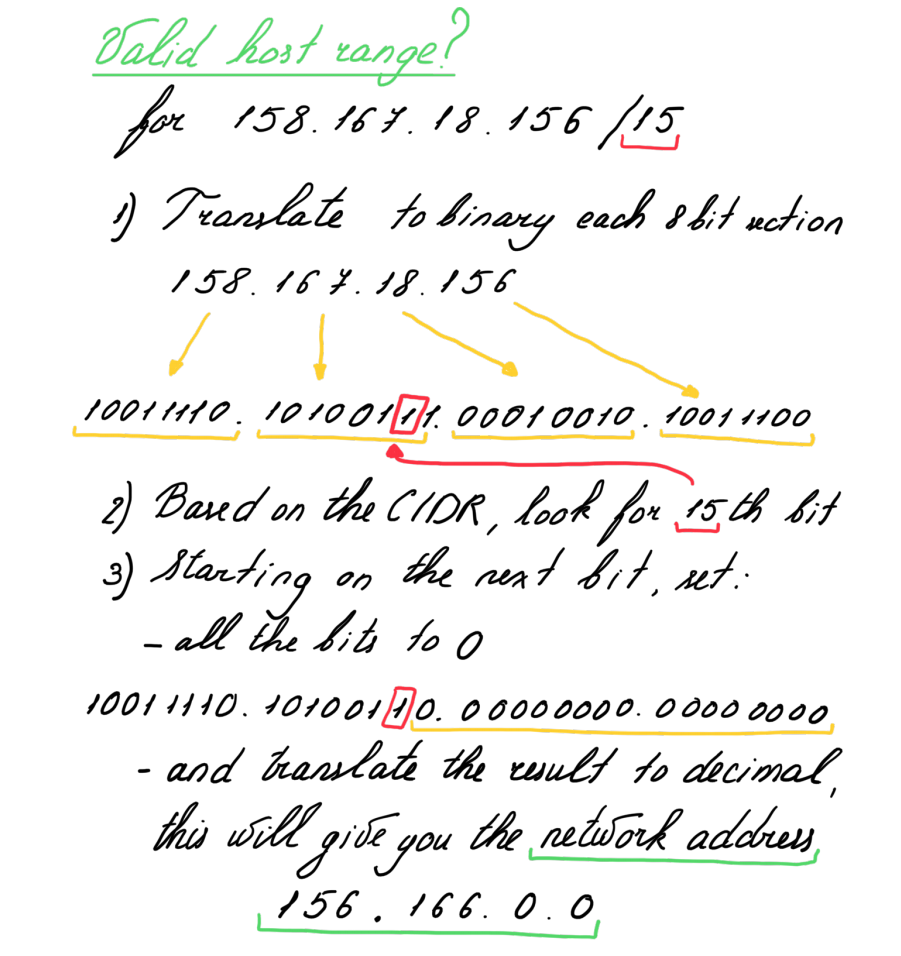 Valid host range?
for 158.167.18.156 /15
1) Translate to binary each 8bit section
158.167.18.156
10011110.10100111.00010010.10011100
2) Based on the CIDR, look for 15th bit
3) Starting on the next bit, set:
- all the bits to 0
10011110.10100110.00000000.00000000
- and translate the result to decimal,
this will give you the network address
156.166.0.0